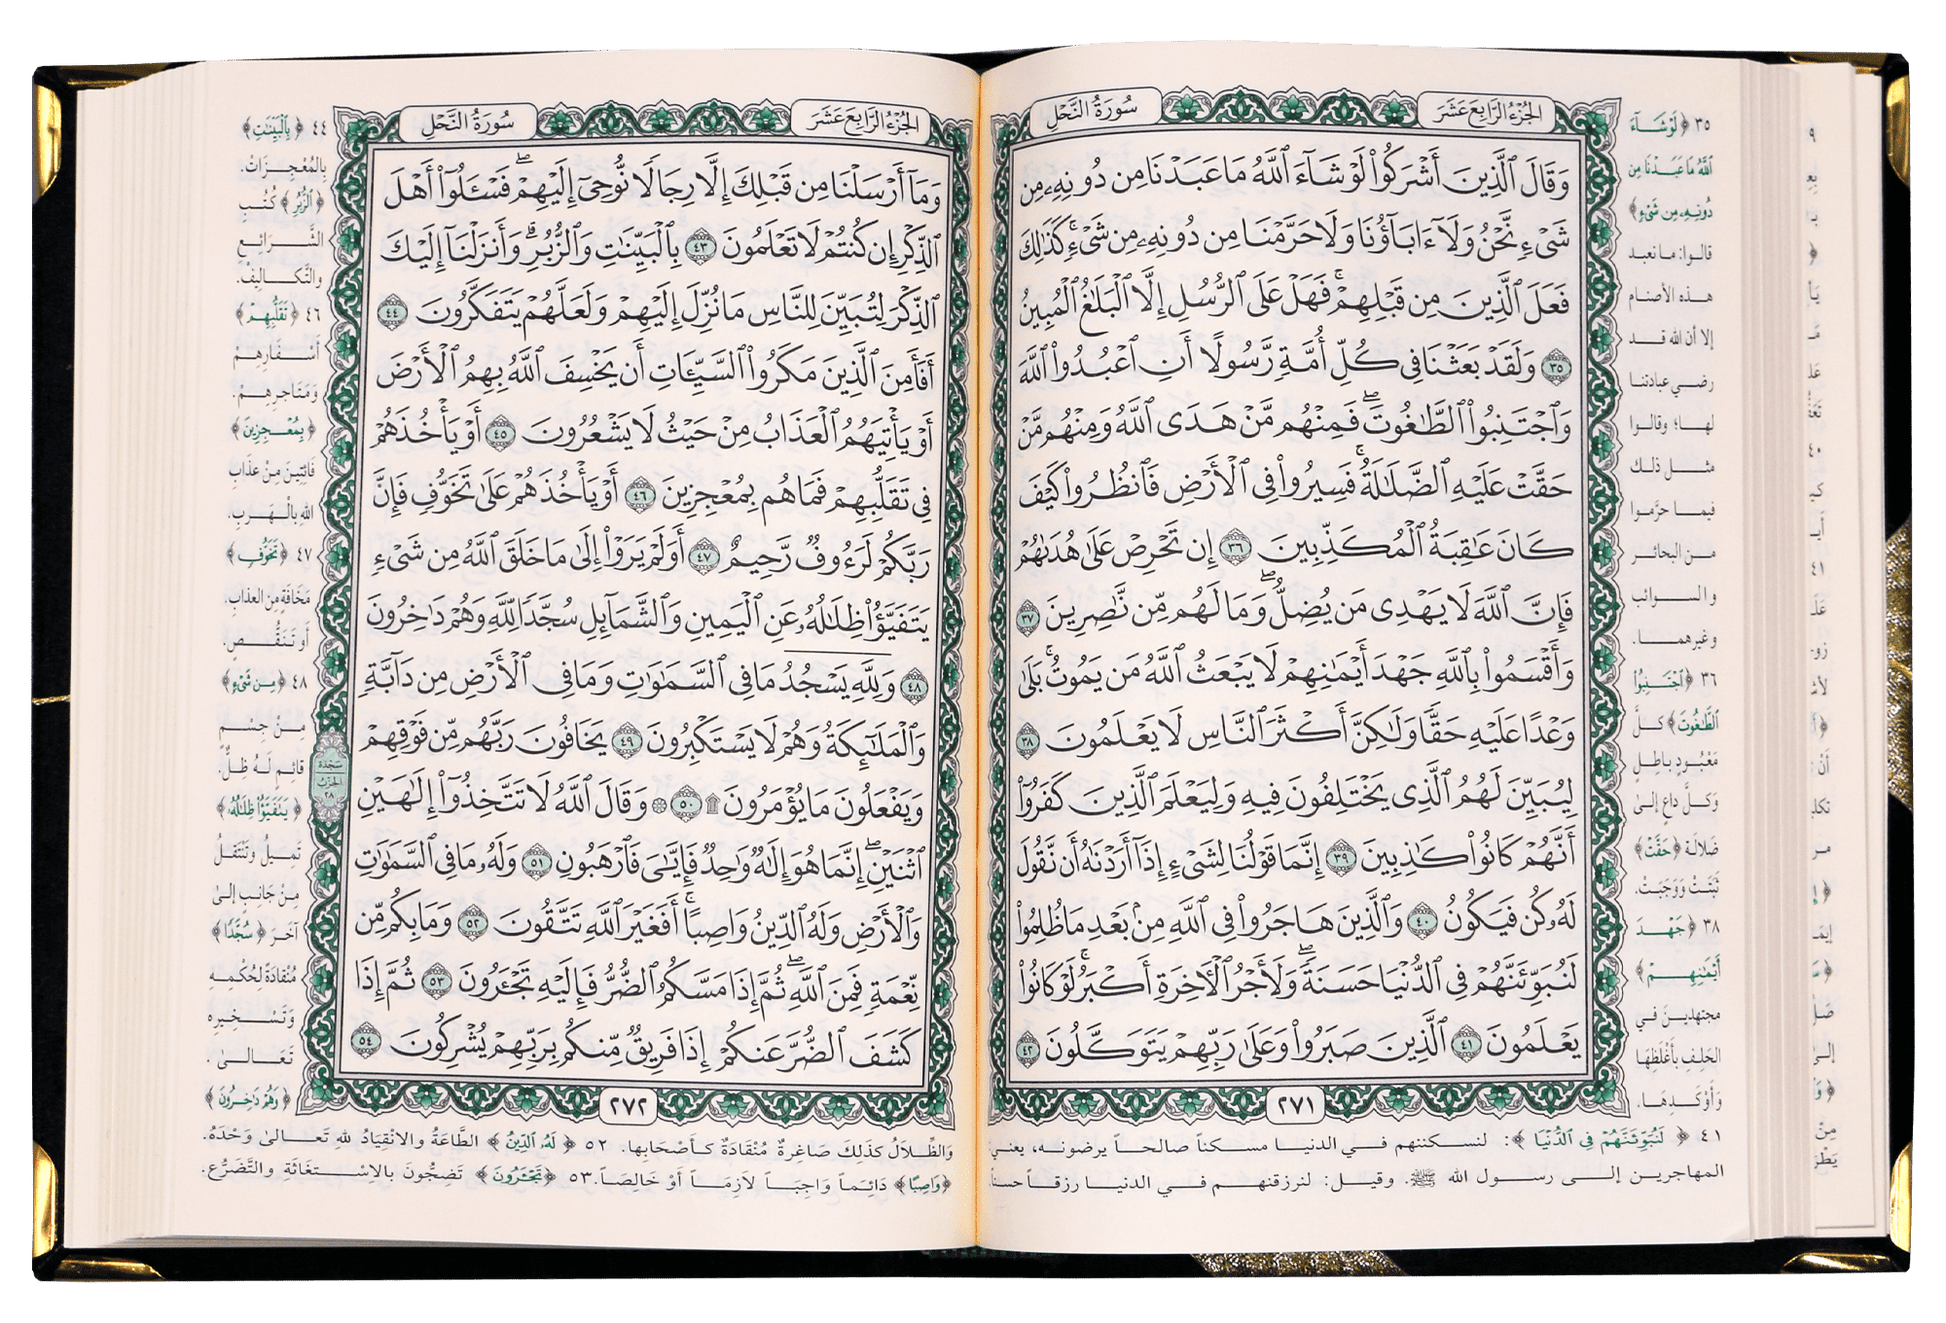 سُورَةُ النَّحْلِ
الجُزْءُ الرَّابِعَ عَشَرَ
وَقَالَ ٱلَّذِينَ أَشْرَكُوا۟ لَوْ شَآءَ ٱللَّهُ مَا عَبَدْنَا مِن دُونِهِۦ مِن
شَىْءٍ نَّحْنُ وَلَآ ءَابَآؤُنَا وَلَا حَرَّمْنَا مِن دُونِهِۦ مِن شَىْءٍ ۚ كَذَٰلِكَ
فَعَلَ ٱلَّذِينَ مِن قَبْلِهِمْ ۚ فَهَلْ عَلَى ٱلرُّسُلِ إِلَّا ٱلْبَلَٰغُ ٱلْمُبِينُ
٣٥ وَلَقَدْ بَعَثْنَا فِى كُلِّ أُمَّةٍ رَّسُولًا أَنِ ٱعْبُدُوا۟ ٱللَّهَ
وَٱجْتَنِبُوا۟ ٱلطَّٰغُوتَ ۖ فَمِنْهُم مَّنْ هَدَى ٱللَّهُ وَمِنْهُم مَّنْ
حَقَّتْ عَلَيْهِ ٱلضَّلَٰلَةُ ۚ فَسِيرُوا۟ فِى ٱلْأَرْضِ فَٱنظُرُوا۟ كَيْفَ
كَانَ عَٰقِبَةُ ٱلْمُكَذِّبِينَ ٣٦ إِن تَحْرِصْ عَلَىٰ هُدَىٰهُمْ
فَإِنَّ ٱللَّهَ لَا يَهْدِى مَن يُضِلُّ ۖ وَمَا لَهُم مِّن نَّٰصِرِينَ ٣٧
وَأَقْسَمُوا۟ بِٱللَّهِ جَهْدَ أَيْمَٰنِهِمْ لَا يَبْعَثُ ٱللَّهُ مَن يَمُوتُ ۚ بَلَىٰ
وَعْدًا عَلَيْهِ حَقًّا وَلَٰكِنَّ أَكْثَرَ ٱلنَّاسِ لَا يَعْلَمُونَ ٣٨
لِيُبَيِّنَ لَهُمُ ٱلَّذِى يَخْتَلِفُونَ فِيهِ وَلِيَعْلَمَ ٱلَّذِينَ كَفَرُوٓا۟
أَنَّهُمْ كَانُوا۟ كَٰذِبِينَ ٣٩ إِنَّمَا قَوْلُنَا لِشَىْءٍ إِذَآ أَرَدْنَٰهُ أَن نَّقُولَ
لَهُۥ كُن فَيَكُونُ ٤٠ وَٱلَّذِينَ هَاجَرُوا۟ فِى ٱللَّهِ مِنۢ بَعْدِ مَا ظُلِمُوا۟
لَنُبَوِّئَنَّهُمْ فِى ٱلدُّنْيَا حَسَنَةً ۖ وَلَأَجْرُ ٱلْءَاخِرَةِ أَكْبَرُ ۚ لَوْ كَانُوا۟
يَعْلَمُونَ ٤١ ٱلَّذِينَ صَبَرُوا۟ وَعَلَىٰ رَبِّهِمْ يَتَوَكَّلُونَ ٤٢
٢٧١
٣٥ ﴿لَوْ شَآءَ
ٱللَّهُ مَا عَبَدْنَا مِن
دُونِهِۦ مِن شَىْءٍ﴾
قالوا: ما نعبد
هذه الأصنام
إلا أن الله قد
رضي عبادتنا
لها؛ وقالوا
مثل ذلك
فيما حرَّموا
من البحائر
والسوائب
وغيرهما.
٣٦ ﴿ٱجْتَنِبُوا۟
ٱلطَّٰغُوتَ﴾ كلَّ
مَعْبُودٍ باطِلٍ
وَكلَّ داعٍ إلىٰ
ضَلالَة ﴿حَقَّتْ﴾
ثَبَتَتْ وَوَجَبَتْ.
٣٨ ﴿جَهْدَ
أَيْمَٰنِهِمْ﴾
مجتهدينَ في
الحَلِفِ بأَغْلَظِهَا
وَأَوْكَدِهَا.
٤١ ﴿لَنُبَوِّئَنَّهُمْ فِى ٱلدُّنْيَا﴾: لنسكننهم في الدنيا مسكناً صالحاً يرضونه، يعني
المهاجرين إلى رسول الله ﷺ. وقيل: لنرزقنهم في الدنيا رزقاً حسناً
سُورَةُ النَّحْلِ
الجُزْءُ الرَّابِعَ عَشَرَ
وَمَآ أَرْسَلْنَا مِن قَبْلِكَ إِلَّا رِجَالًا نُّوحِىٓ إِلَيْهِمْ ۖ فَسْـَٔلُوٓا۟ أَهْلَ
ٱلذِّكْرِ إِن كُنتُمْ لَا تَعْلَمُونَ ٤٣ بِٱلْبَيِّنَٰتِ وَٱلزُّبُرِ ۗ وَأَنزَلْنَآ إِلَيْكَ
ٱلذِّكْرَ لِتُبَيِّنَ لِلنَّاسِ مَا نُزِّلَ إِلَيْهِمْ وَلَعَلَّهُمْ يَتَفَكَّرُونَ ٤٤
أَفَأَمِنَ ٱلَّذِينَ مَكَرُوا۟ ٱلسَّيِّـَٔاتِ أَن يَخْسِفَ ٱللَّهُ بِهِمُ ٱلْأَرْضَ
أَوْ يَأْتِيَهُمُ ٱلْعَذَابُ مِنْ حَيْثُ لَا يَشْعُرُونَ ٤٥ أَوْ يَأْخُذَهُمْ
فِى تَقَلُّبِهِمْ فَمَا هُم بِمُعْجِزِينَ ٤٦ أَوْ يَأْخُذَهُمْ عَلَىٰ تَخَوُّفٍ فَإِنَّ
رَبَّكُمْ لَرَءُوفٌ رَّحِيمٌ ٤٧ أَوَلَمْ يَرَوْا۟ إِلَىٰ مَا خَلَقَ ٱللَّهُ مِن شَىْءٍ
يَتَفَيَّؤُا۟ ظِلَٰلُهُۥ عَنِ ٱلْيَمِينِ وَٱلشَّمَآئِلِ سُجَّدًا لِّلَّهِ وَهُمْ دَٰخِرُونَ
٤٨ وَلِلَّهِ يَسْجُدُ مَا فِى ٱلسَّمَٰوَٰتِ وَمَا فِى ٱلْأَرْضِ مِن دَآبَّةٍ
وَٱلْمَلَٰٓئِكَةُ وَهُمْ لَا يَسْتَكْبِرُونَ ٤٩ يَخَافُونَ رَبَّهُم مِّن فَوْقِهِمْ
وَيَفْعَلُونَ مَا يُؤْمَرُونَ ۩ ٥٠ ۞ وَقَالَ ٱللَّهُ لَا تَتَّخِذُوٓا۟ إِلَٰهَيْنِ
ٱثْنَيْنِ ۖ إِنَّمَا هُوَ إِلَٰهٌ وَٰحِدٌ ۖ فَإِيَّٰىَ فَٱرْهَبُونِ ٥١ وَلَهُۥ مَا فِى ٱلسَّمَٰوَٰتِ
وَٱلْأَرْضِ وَلَهُ ٱلدِّينُ وَاصِبًا ۚ أَفَغَيْرَ ٱللَّهِ تَتَّقُونَ ٥٢ وَمَا بِكُم مِّن
نِّعْمَةٍ فَمِنَ ٱللَّهِ ۖ ثُمَّ إِذَا مَسَّكُمُ ٱلضُّرُّ فَإِلَيْهِ تَجْـَٔرُونَ ٥٣ ثُمَّ إِذَا
كَشَفَ ٱلضُّرَّ عَنكُمْ إِذَا فَرِيقٌ مِّنكُم بِرَبِّهِمْ يُشْرِكُونَ ٥٤
٢٧٢
سَجْدَة
٤٤ ﴿بِٱلْبَيِّنَٰتِ﴾
بِالمُعْجِزَاتْ.
﴿ٱلزُّبُرِ﴾ كُتُبِ
الشَّرَائِعِ
والتَّكالِيْف.
٤٦ ﴿تَقَلُّبِهِمْ﴾
أَسْفَارِهِمْ
وَمَتَاجِرِهِمْ.
﴿بِمُعْجِزِينَ﴾
فَائِتِينَ مِنْ عَذَابِ
اللهِ بِالْهَرَبِ.
٤٧ ﴿تَخَوُّفٍ﴾
مَخَافَةٍ مِنَ العذابِ.
أَو تَنَقُّصٍ.
٤٨ ﴿مِن شَىْءٍ﴾
مِنْ جِسْمٍ
قائِمٍ لَهُ ظِلٌّ.
﴿يَتَفَيَّؤُا۟ ظِلَٰلُهُۥ﴾
تَمِيلُ وَتَنْتَقِلُ
مِنْ جَانِبٍ إلىٰ
آخَرَ ﴿سُجَّدًا﴾
مُنْقَادَةً لِحُكْمِهِ
وَتَسْخِيرِه
تَعَالىٰ.
﴿وَهُمْ دَٰخِرُونَ﴾
وَالظِّلالُ كَذلِكَ صَاغِرةٌ مُنْقَادَةٌ كأَصْحَابِها. ٥٢ ﴿لَهُ ٱلدِّينُ﴾ الطَّاعَةُ والانْقِيَادُ للهِ تَعَالىٰ وَحْدَهُ.
﴿وَاصِبًا﴾ دَائِماً وَاجِبَاً لاَزِمَاً أَوْ خَالِصَا. ٥٣ ﴿تَجْـَٔرُونَ﴾ تَضِجُّونَ بالاِسْتِغَاثَةِ والتَّضَرُّعِ.